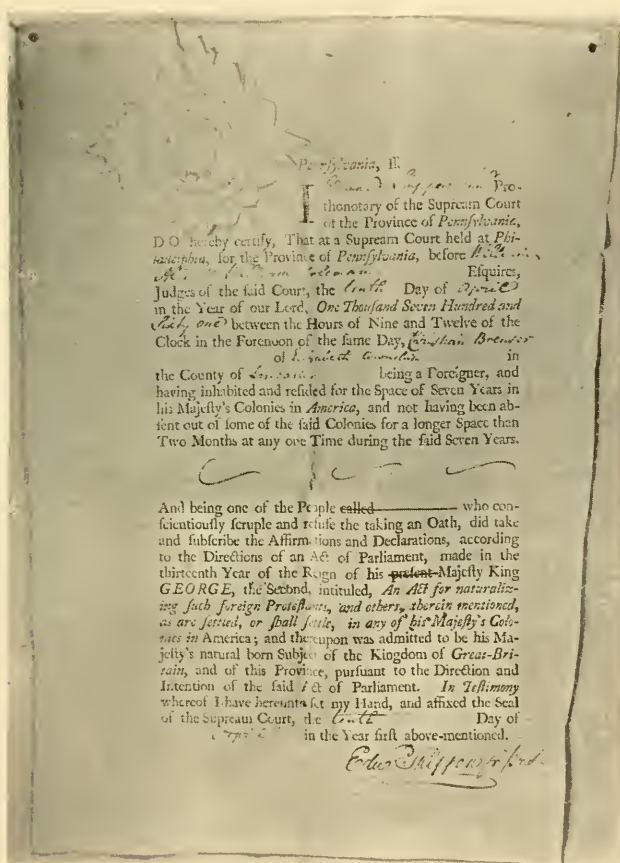 Pennſylvania, ſſ.
I Pro-
thonotary of the Supream Court
of the Province of Pennſylvania,
DO hereby certify, That at a Supream Court held at Phi-
ladelphia, for the Province of Pennſylvania, before
Coleman Eſquires,
Judges of the ſaid Court, the tenth Day of April
in the Year of our Lord, One Thouſand Seven Hundred and
ſixty one between the Hours of Nine and Twelve of the
Clock in the Forenoon of the ſame Day, Chriſtian Brenser
of in
the County of Lancaster being a Foreigner, and
having inhabited and reſided for the Space of Seven Years in
his Majeſty's Colonies in America, and not having been ab-
ſent out of ſome of the ſaid Colonies for a longer Space than
Two Months at any one Time during the ſaid Seven Years.
And being one of the People called who con-
ſcientiouſly ſcruple and refuſe the taking an Oath, did take
and ſubſcribe the Affirmations and Declarations, according
to the Directions of an Act of Parliament, made in the
thirteenth Year of the Reign of his preſent Majeſty King
GEORGE, the Second, intituled, An Act for naturaliz-
ing ſuch foreign Proteſtants, and others, therein mentioned,
as are ſettled, or ſhall ſettle, in any of his Majeſty's Colo-
nies in America; and thereupon was admitted to be his Ma-
jeſty's natural born Subject of the Kingdom of Great-Bri-
tain, and of this Province, purſuant to the Direction and
Intention of the ſaid Act of Parliament. In Teſtimony
whereof I have hereunto ſet my Hand, and affixed the Seal
of the Supream Court, the tenth Day of
April in the Year firſt above-mentioned.